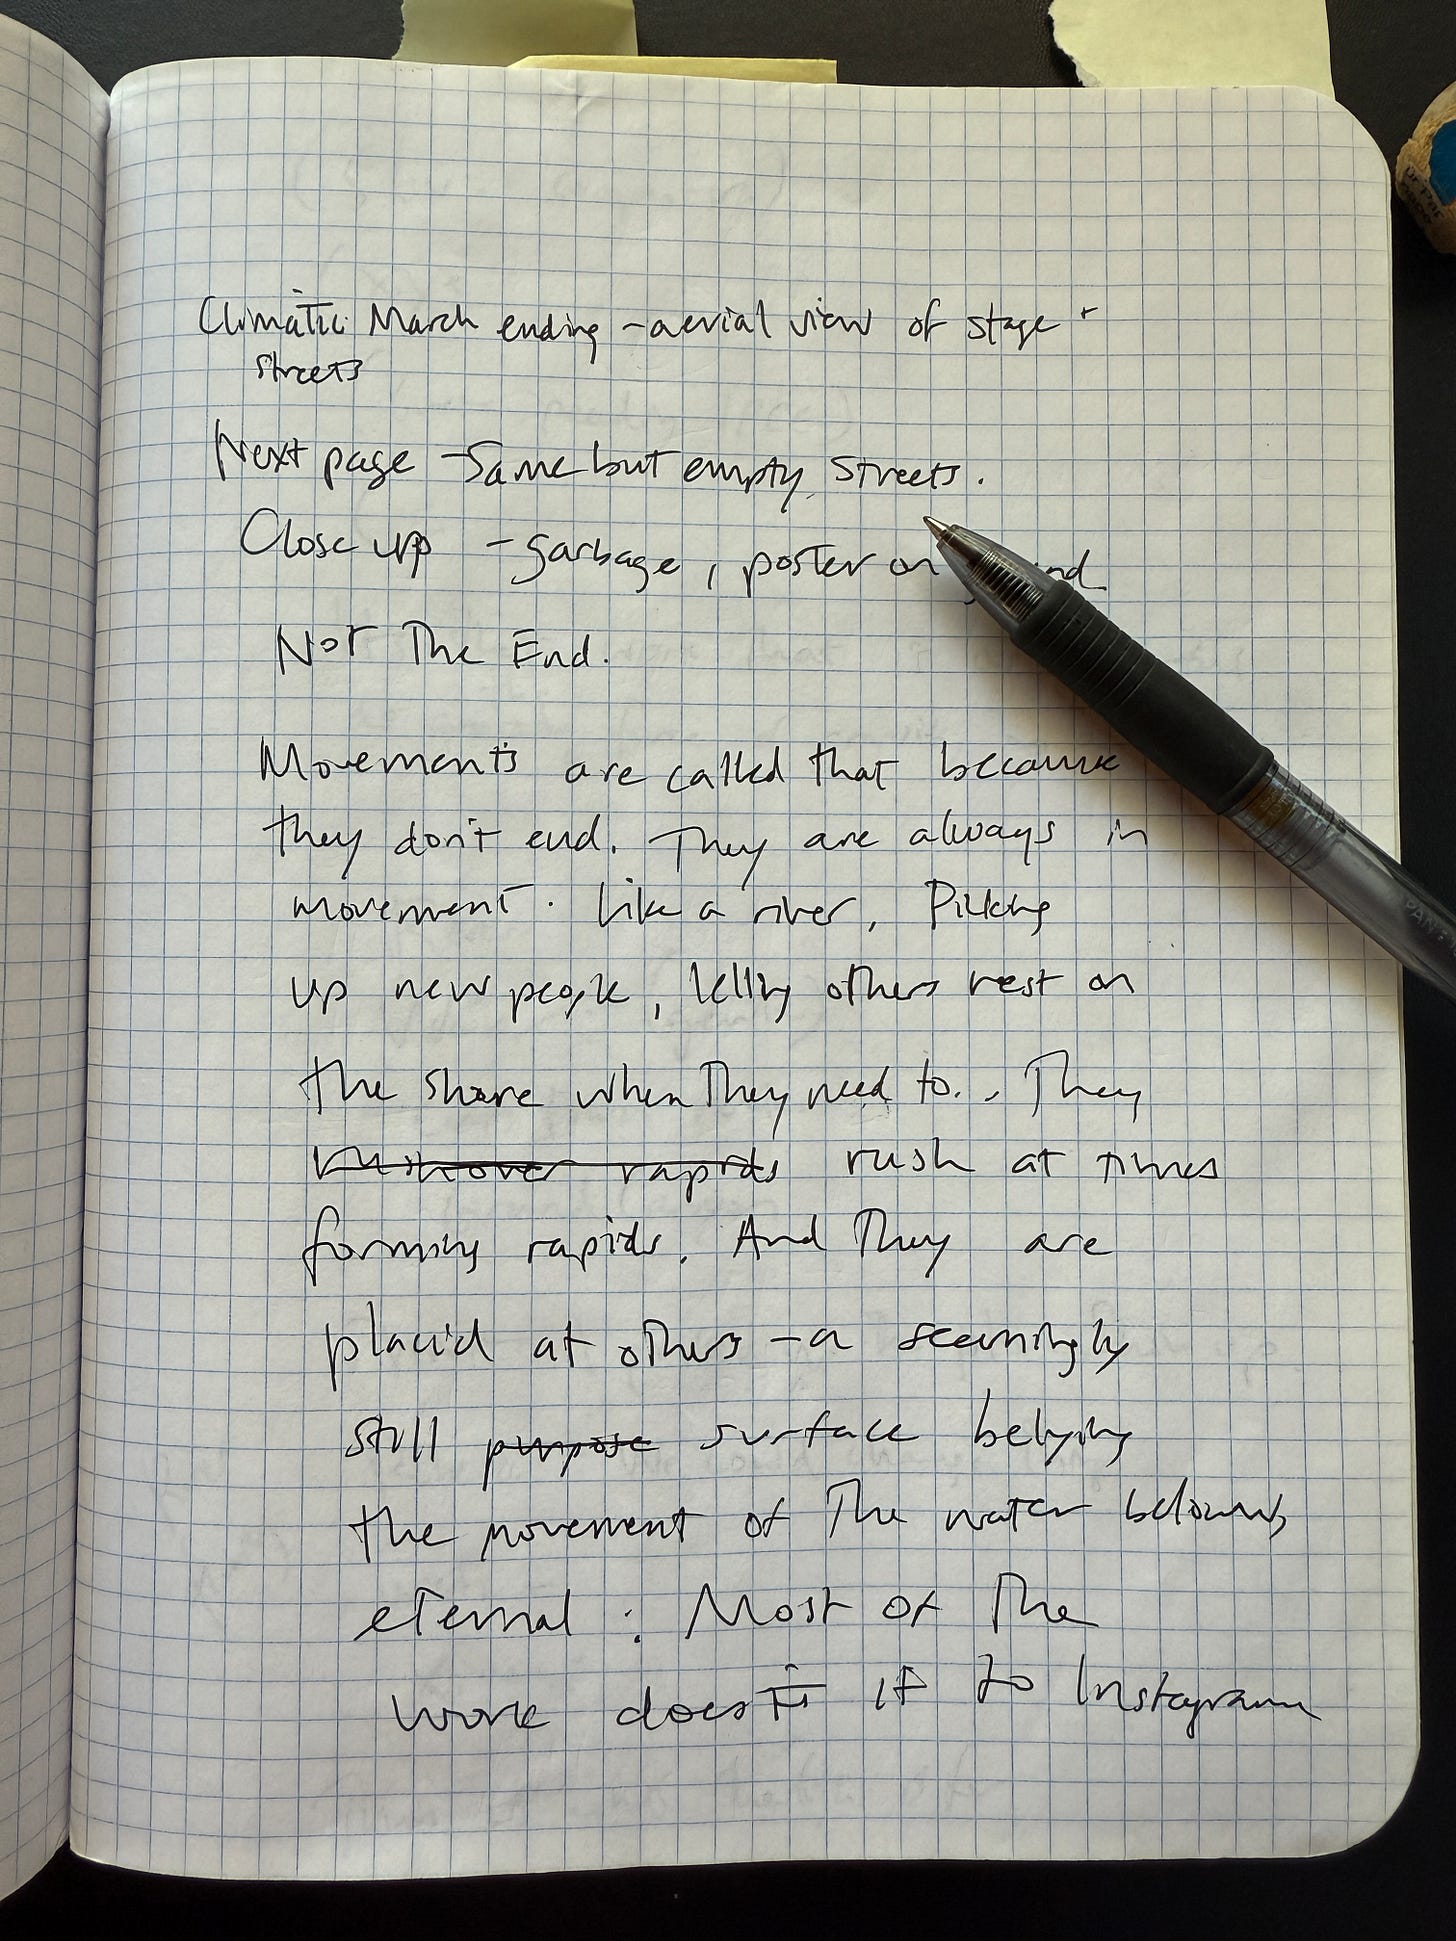 Climatic March ending - aerial view of stage +
streets
Next page - Same but empty streets.
Close up - garbage, poster on
Not The End.
Movements are called that because
they don't end. They are always in
movement. Like a river, Picking
up new people, letting others rest on
the shore when They need to.. They
rapids rush at times
forming rapids. And They are
placid at others - a seemingly
still purpose surface belying
the movement of The water below,
eternal : Most of The
work doesn't it to Instagram